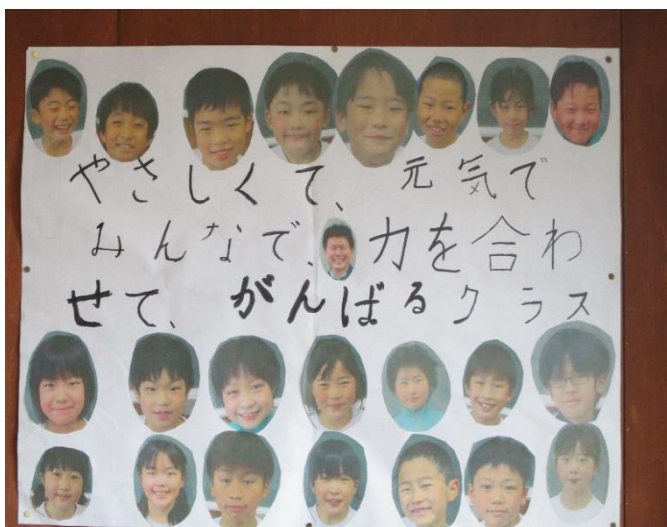 やさしくて、元気で
みんなで、力を合わ
せて、がんばるクラス